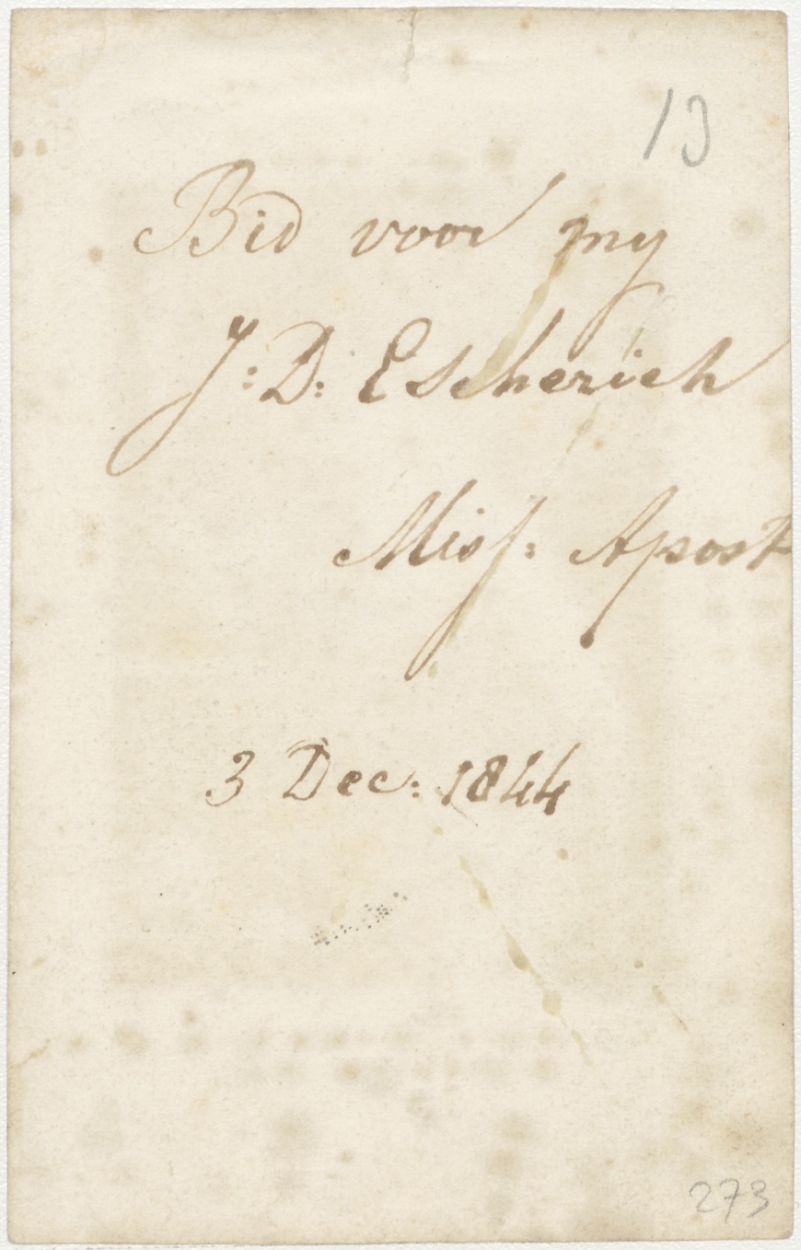 13
Bid voor my
J: D: Escherich
Miss: Apost
3 Dec: 1844
273